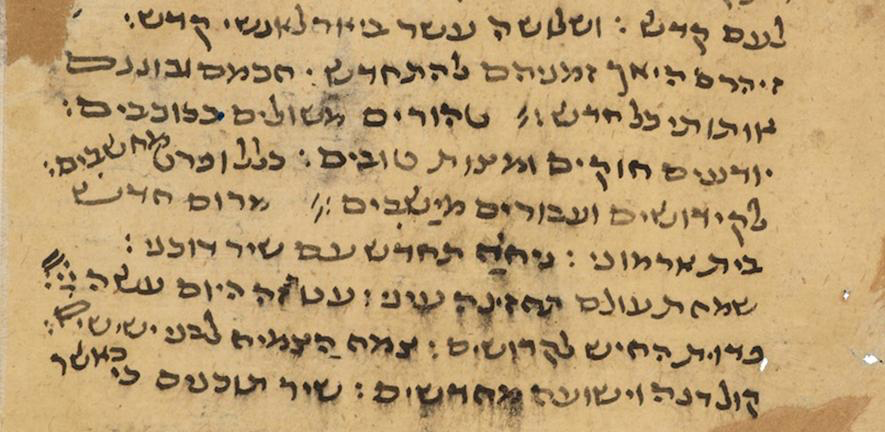 לעם קדש : ושלושה עשר ביאר לאנשי קדש :
זיהרם היאך זמניהם להתחדש : חכמם ובוננם
אותותי כל חדש : טהורים משולים ככוכבים :
יודעים חוקים ומצות טובים : כלל ופרט מחשבים :
לקידושים ועבורים מישבים : מרום חדש
בית ארמוני : ניחח תחדש עם שיר דוכני :
שמחת עולם תחזינה עיני : עט זה היום עשה ייי :
פדות החיש לקדושים : צמח הצמיח לבני ישישים :
קול רנה וישועה מחדשים : שיר תוכנים כי כאשר